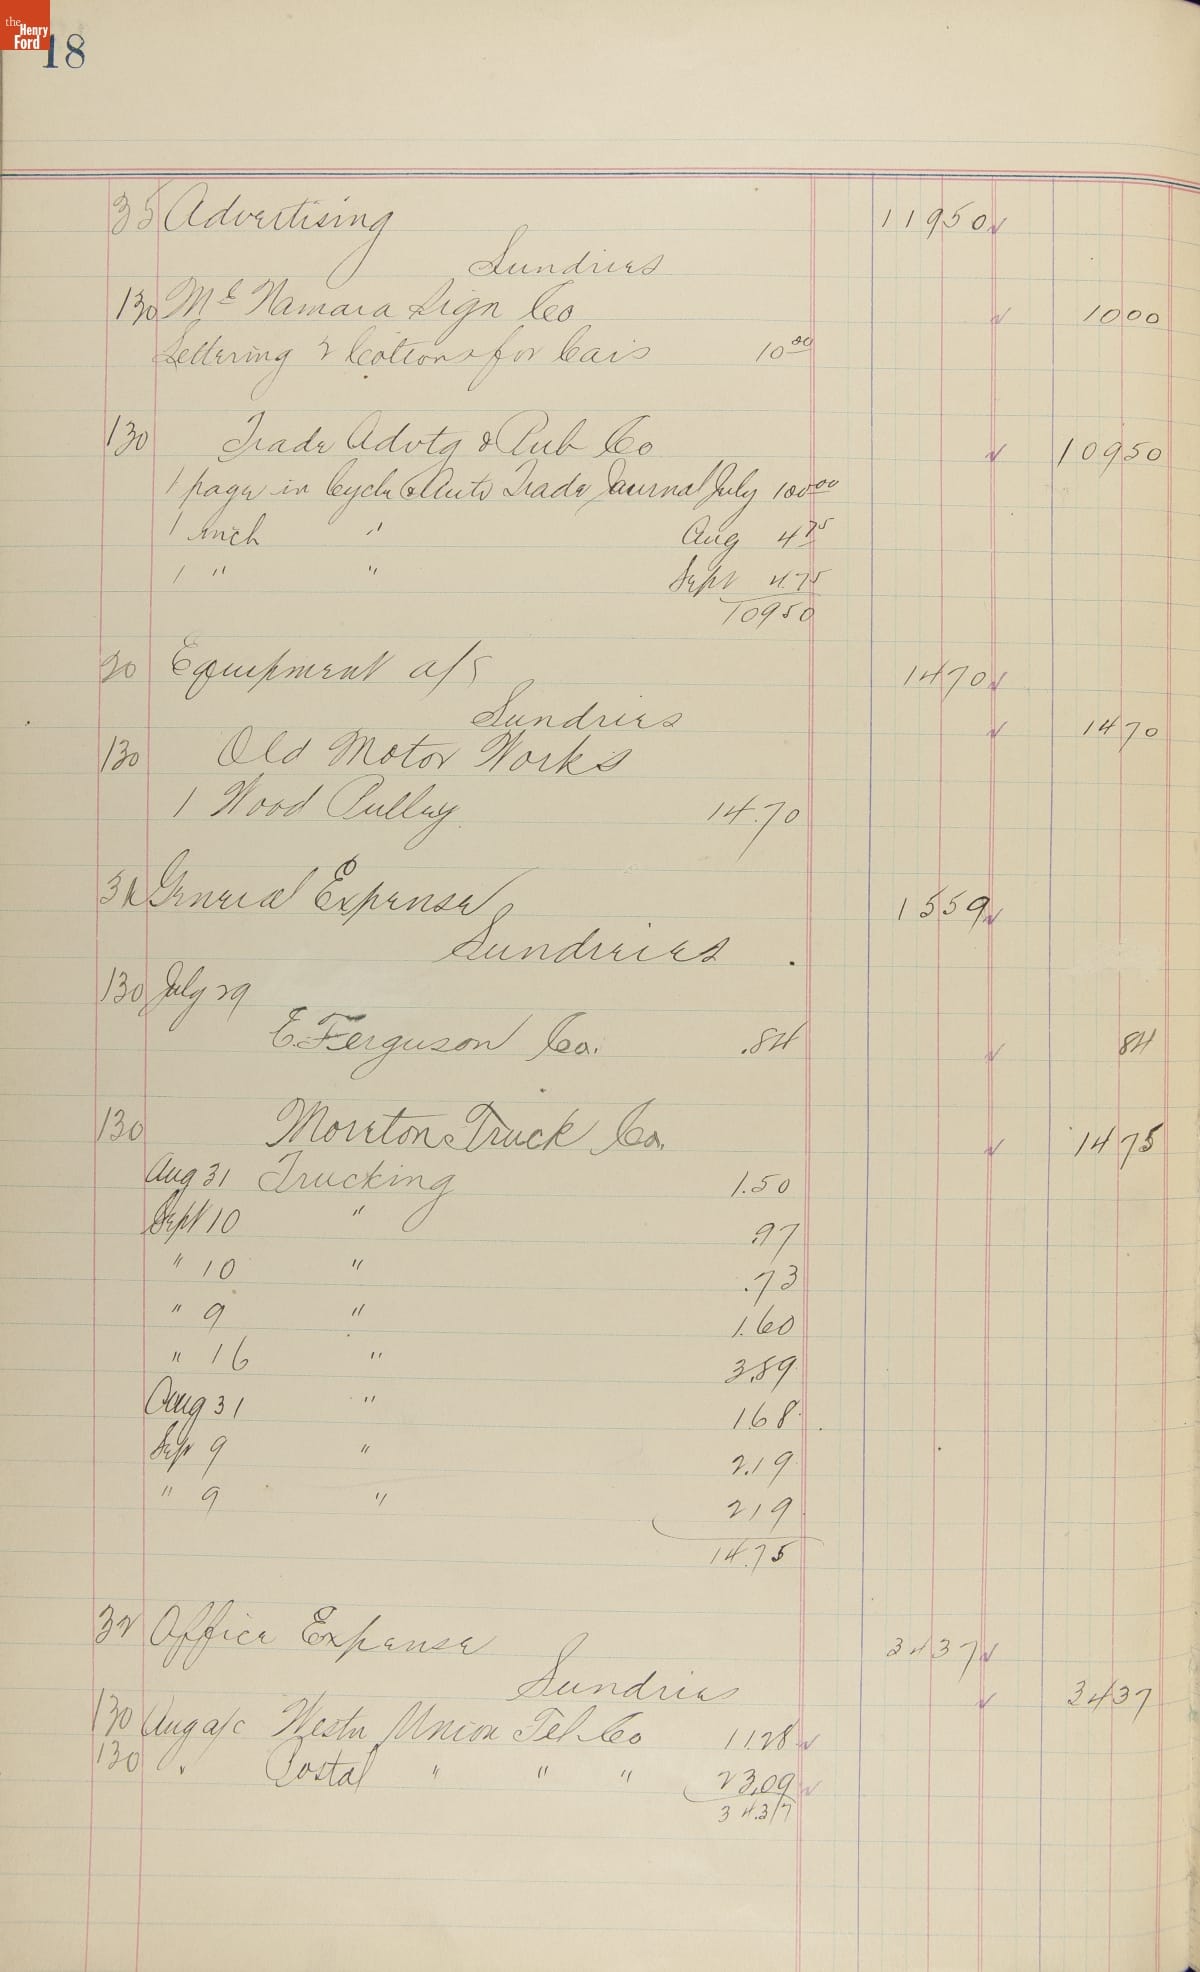 the Henry Ford
18
35 Advertising 119 50
Sundries
130 Mc Namara Sign Co 10 00
Lettering 2 for Cars 10 00
130 Trade Advtg & Pub Co 109 50
1 page in Cycle & Auto Trade Journal July 100 00
1 inch " Aug 4 75
1 " " Sept 4.75
109 50
20 Equipment a/c 14 70
Sundries 14 70
130 Old Motor Works
1 Wood Pulley 14.70
General Expense 15 59
Sundreies
130 July 29
E. Ferguson Co. .84 84
130 Moreton Truck Co. 14 75
Aug 31 Trucking 1.50
Sept 10 " .97
" 10 " .73
" 9 " 1.60
" 16 " 3.89
Aug 31 " 1.68
Sep 9 " 2.19
" 9 " 2 19
14.75
32 Office Expense 34 37
Sundries 34 37
130 Aug a/c Westn Union Tel Co 11.28
130 " Postal " " " 23.09
34.37